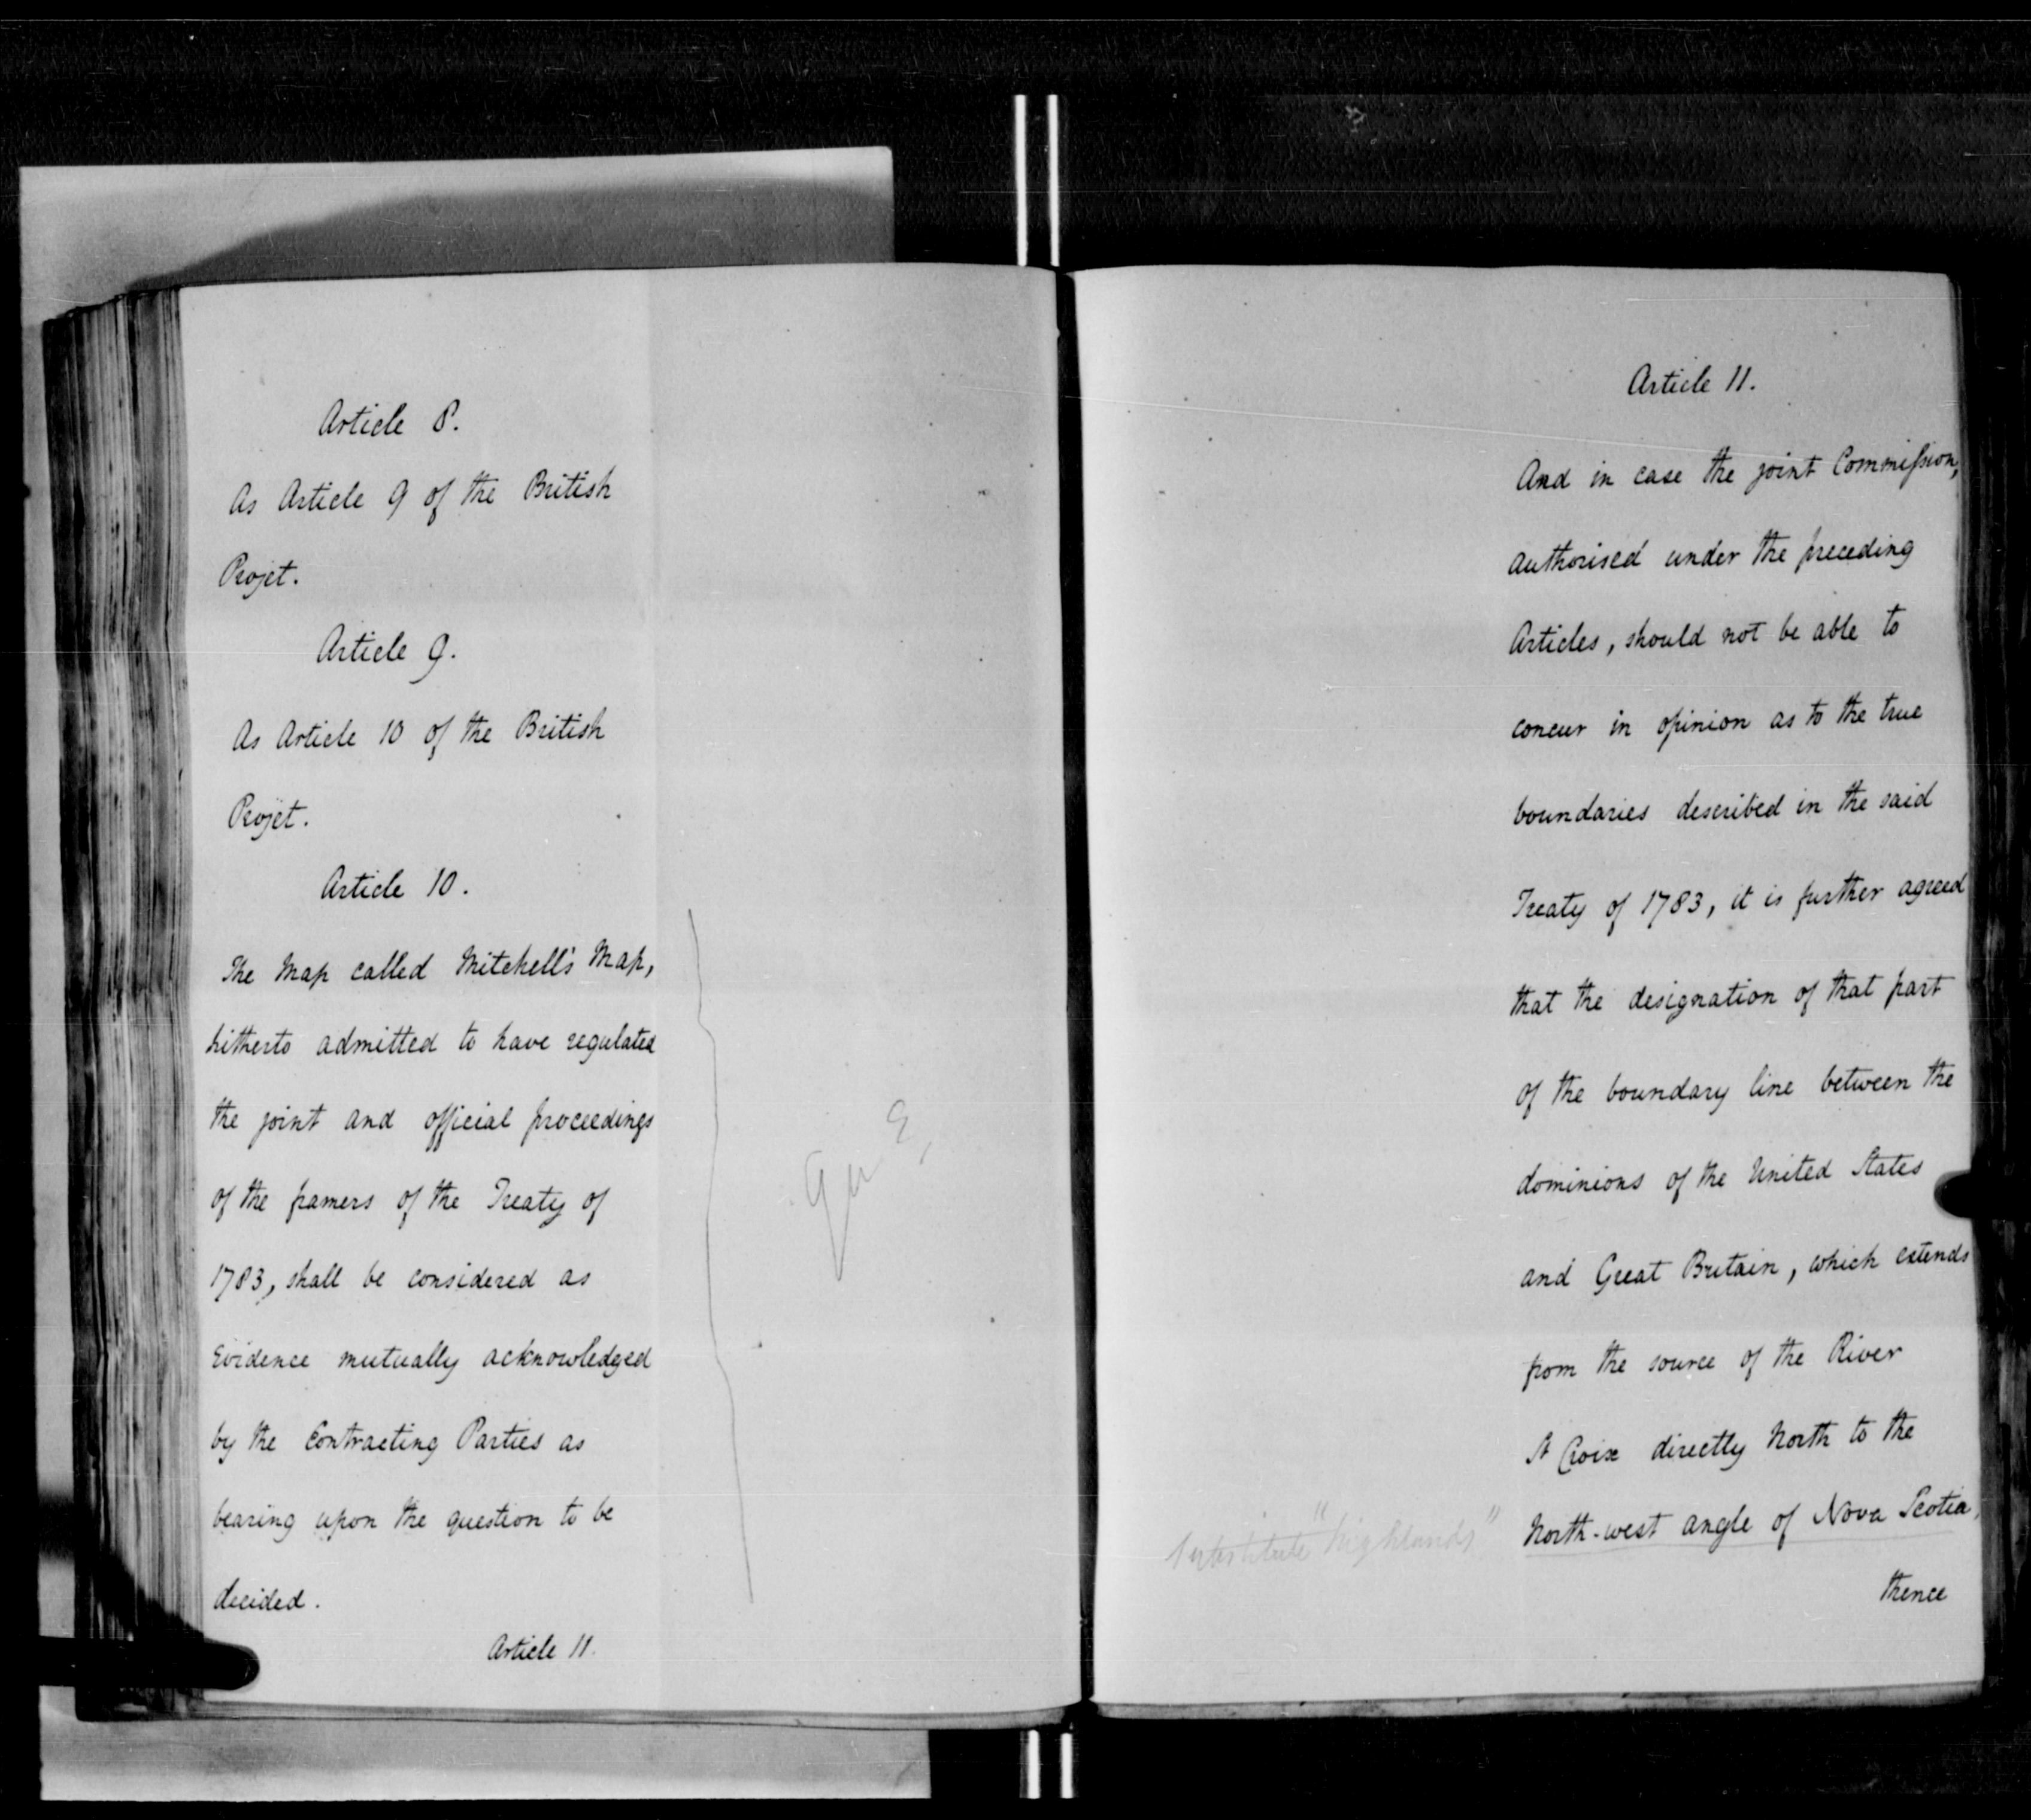 Article 8.
As Article 9 of the British
Projet.
Article 9.
As Article 10 of the British
Projet.
Article 10.
The Map called Mitchell's Map,
hitherto admitted to have regulated
the joint and official proceedings
of the framers of the Treaty of
1783, shall be considered as
Evidence mutually acknowledged
by the Contracting Parties as
bearing upon the question to be
decided.
Article 11.
Article 11.
And in case the joint Commission,
authorised under the preceding
Articles, should not be able to
concur in opinion as to the true
boundaries described in the said
Treaty of 1783, it is further agreed
that the designation of that part
of the boundary line between the
dominions of the United States
and Great Britain, which extends
from the source of the River
St Croix directly North to the
substitute "highlands"
North-west angle of Nova Scotia,
thence